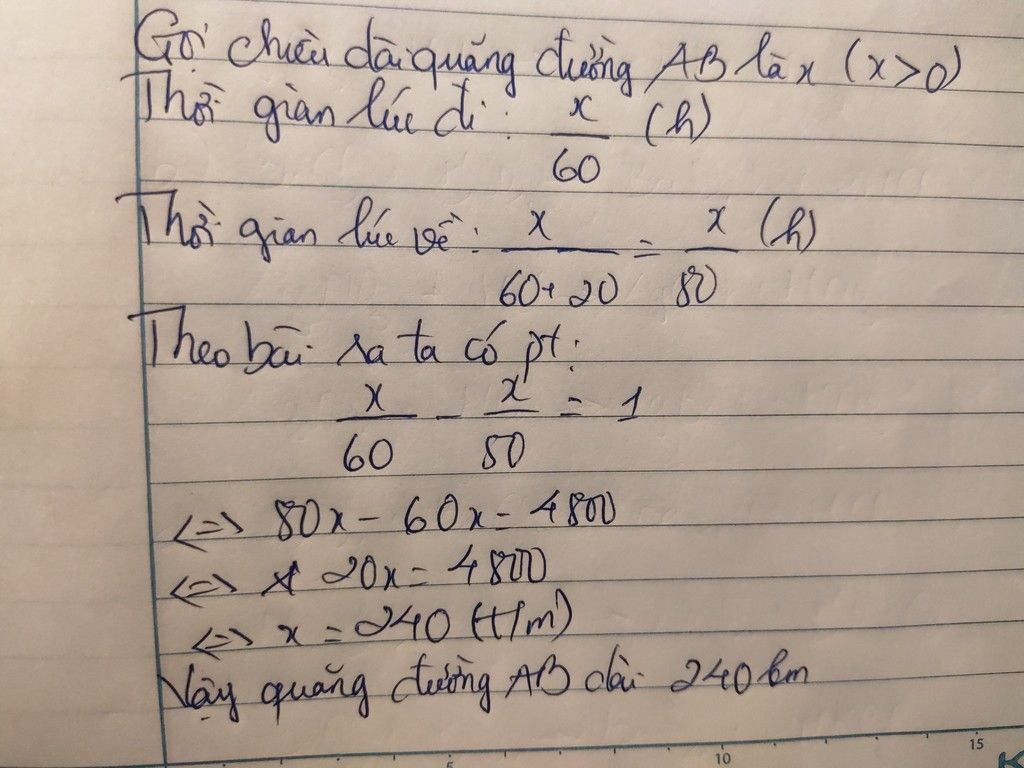 Gọi chiều dài quãng đường AB là x (x>0)
Thời gian lúc đi: x/60 (h)
Thời gian lúc về: x/(60+20) = x/80 (h)
Theo bài ra ta có pt:
x/60 - x/80 = 1
<=> 80x - 60x = 4800
<=> 20x = 4800
<=> x = 240 (t/m)
Vậy quãng đường AB dài 240 km
5 10 15